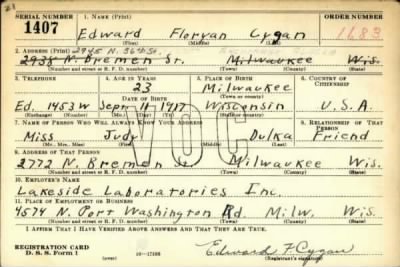 21
SERIAL NUMBER 1. NAME (Print) ORDER NUMBER
1407 Edward Floryan Cygan 1683
(First) (Middle) (Last)
2. ADDRESS (Print) 2945 N. 36th St.
2938 N. Bremen St. Milwaukee Wis.
(Number and street or R. F. D. number) (Town) (County) (State)
3. TELEPHONE 4. AGE IN YEARS 5. PLACE OF BIRTH 6. COUNTRY OF CITIZENSHIP
23 Milwaukee
DATE OF BIRTH
Ed. 1453W Sept. 11 1917 Wisconsin U.S.A.
(Exchange) (Number) (Mo.) (Day) (Yr.) (State or country)
7. NAME OF PERSON WHO WILL ALWAYS KNOW YOUR ADDRESS 8. RELATIONSHIP OF THAT PERSON
Miss Judy Dulka Friend
(Mr., Mrs., Miss) (First) (Middle) (Last)
VOC
9. ADDRESS OF THAT PERSON
2772 N. Bremen St. Milwaukee Wis.
(Number and street or R. F. D. number) (Town) (County) (State)
10. EMPLOYER'S NAME
Lakeside Laboratories Inc.
11. PLACE OF EMPLOYMENT OR BUSINESS
4574 N. Port Washington Rd. Milw. Wis.
(Number and street or R. F. D. number) (Town) (County) (State)
I AFFIRM THAT I HAVE VERIFIED ABOVE ANSWERS AND THAT THEY ARE TRUE.
REGISTRATION CARD Edward F. Cygan
D. S. S. Form 1 (over) (Registrant's signature)